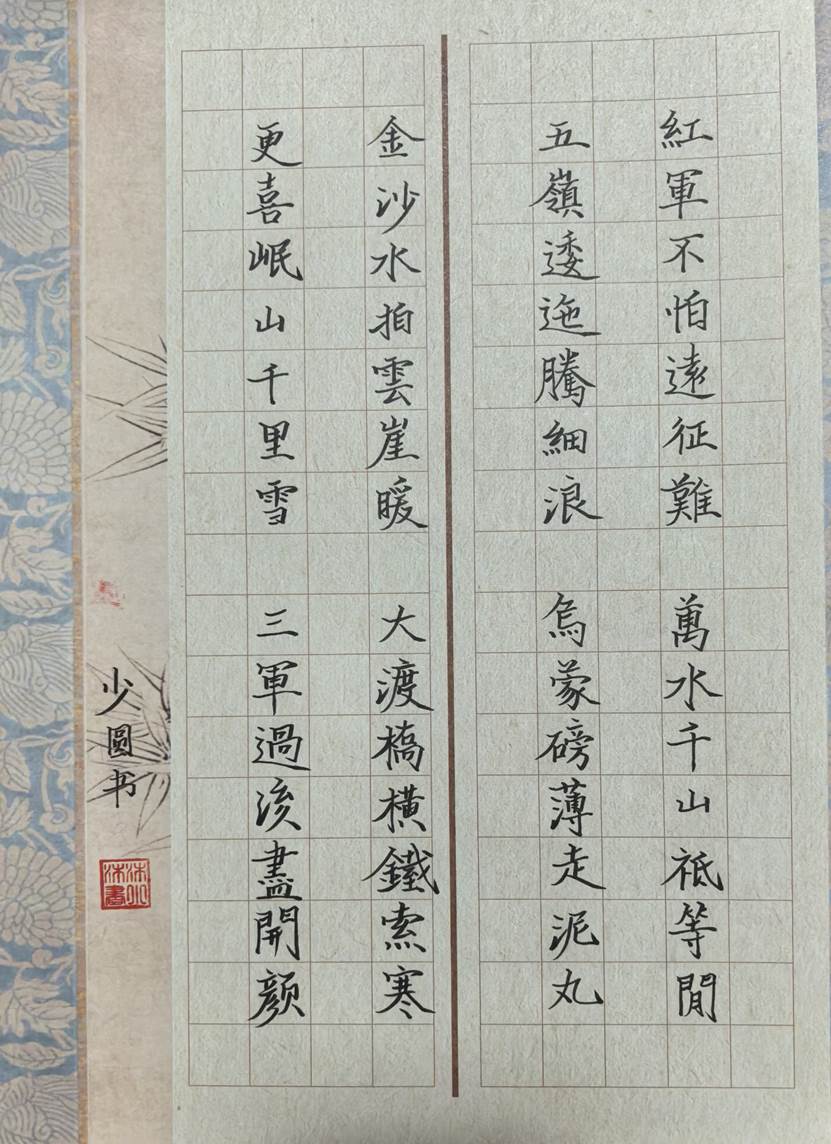 紅軍不怕遠征難 萬水千山祗等閒
五嶺逶迤騰細浪 烏蒙磅薄走泥丸
金沙水拍雲崖暖 大渡橋橫鐵索寒
更喜岷山千里雪 三軍過後盡開顏
少圓书